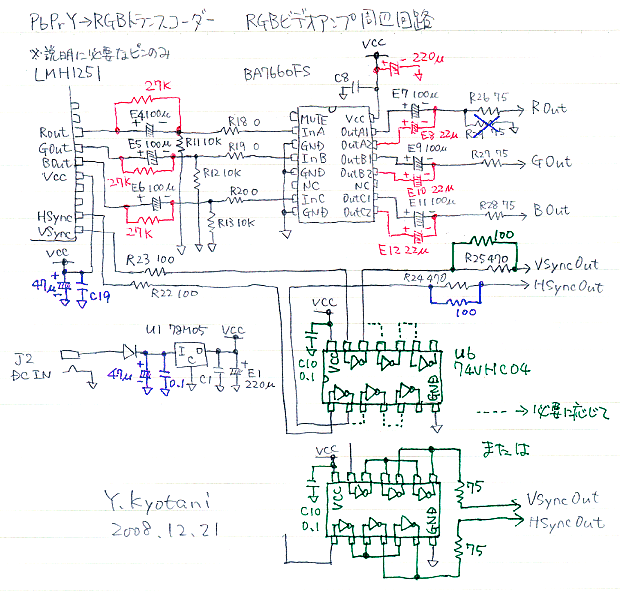 PbPrY→RGBトランスコーダー RGBビデオアンプ周辺回路
※説明に必要なピンのみ
LMH1251
Rout
GOut
BOut
Vcc
HSync
VSync
27K
E4 100μ
E5 100μ
27K
E6 100μ
27K
R11 10K
R12 10K
R13 10K
R18 0
R19 0
R20 0
BA7660FS
VCC
220μ
C8
MUTE
InA
GND
InB
GND
NC
InC
GND
Vcc
OutA1
OutA2
OutB1
OutB2
NC
OutC1
OutC2
E7 100μ
E8 22μ
E9 100μ
E10 22μ
E11 100μ
E12 22μ
R26 75
R27 75
R28 75
ROut
GOut
BOut
VCC
47μ
C19
R23 100
R22 100
100
R25 470
R24 470
100
VSyncOut
HSyncOut
J2
DC IN
47μ
0.1
U1 78M05
IC
C1
VCC
E1
220μ
VCC
C10
0.1
VCC
GND
U6
74VHC04
----→必要に応じて
または
VCC
C10
0.1
VCC
GND
75
75
VSyncOut
HSyncOut
Y.Kyotani
2008.12.21